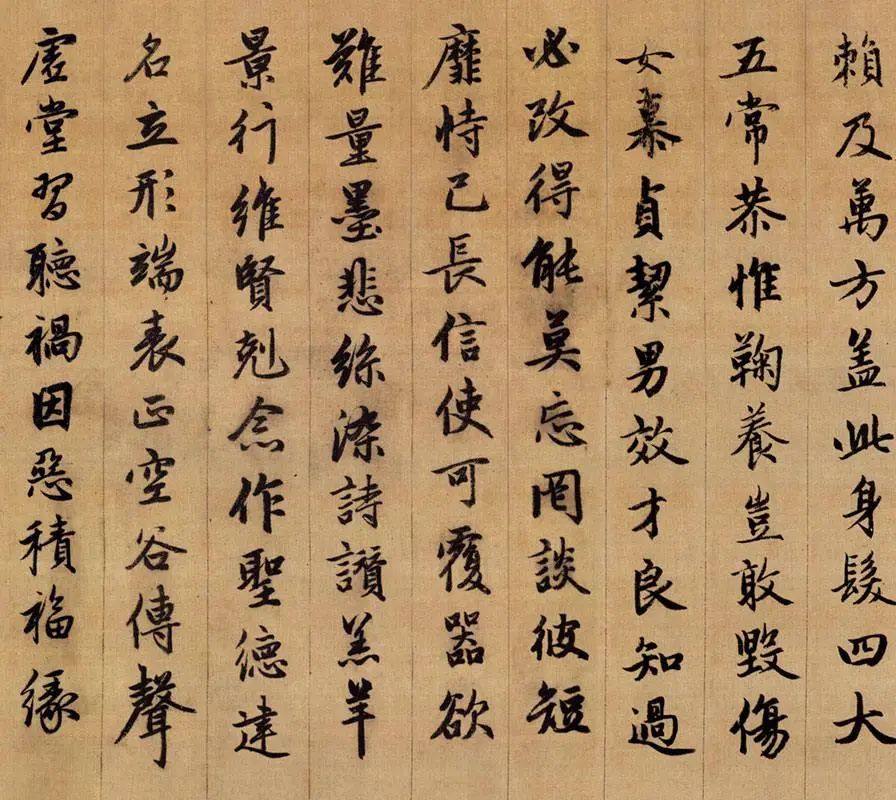 賴及萬方盖此身髮四大
五常恭惟鞠養豈敢毀傷
女慕貞絜男效才良知過
必改得能莫忘罔談彼短
靡恃己長信使可覆器欲
難量墨悲絲染詩讚羔羊
景行維賢剋念作聖德建
名立形端表正空谷傳聲
虛堂習聽禍因惡積福緣